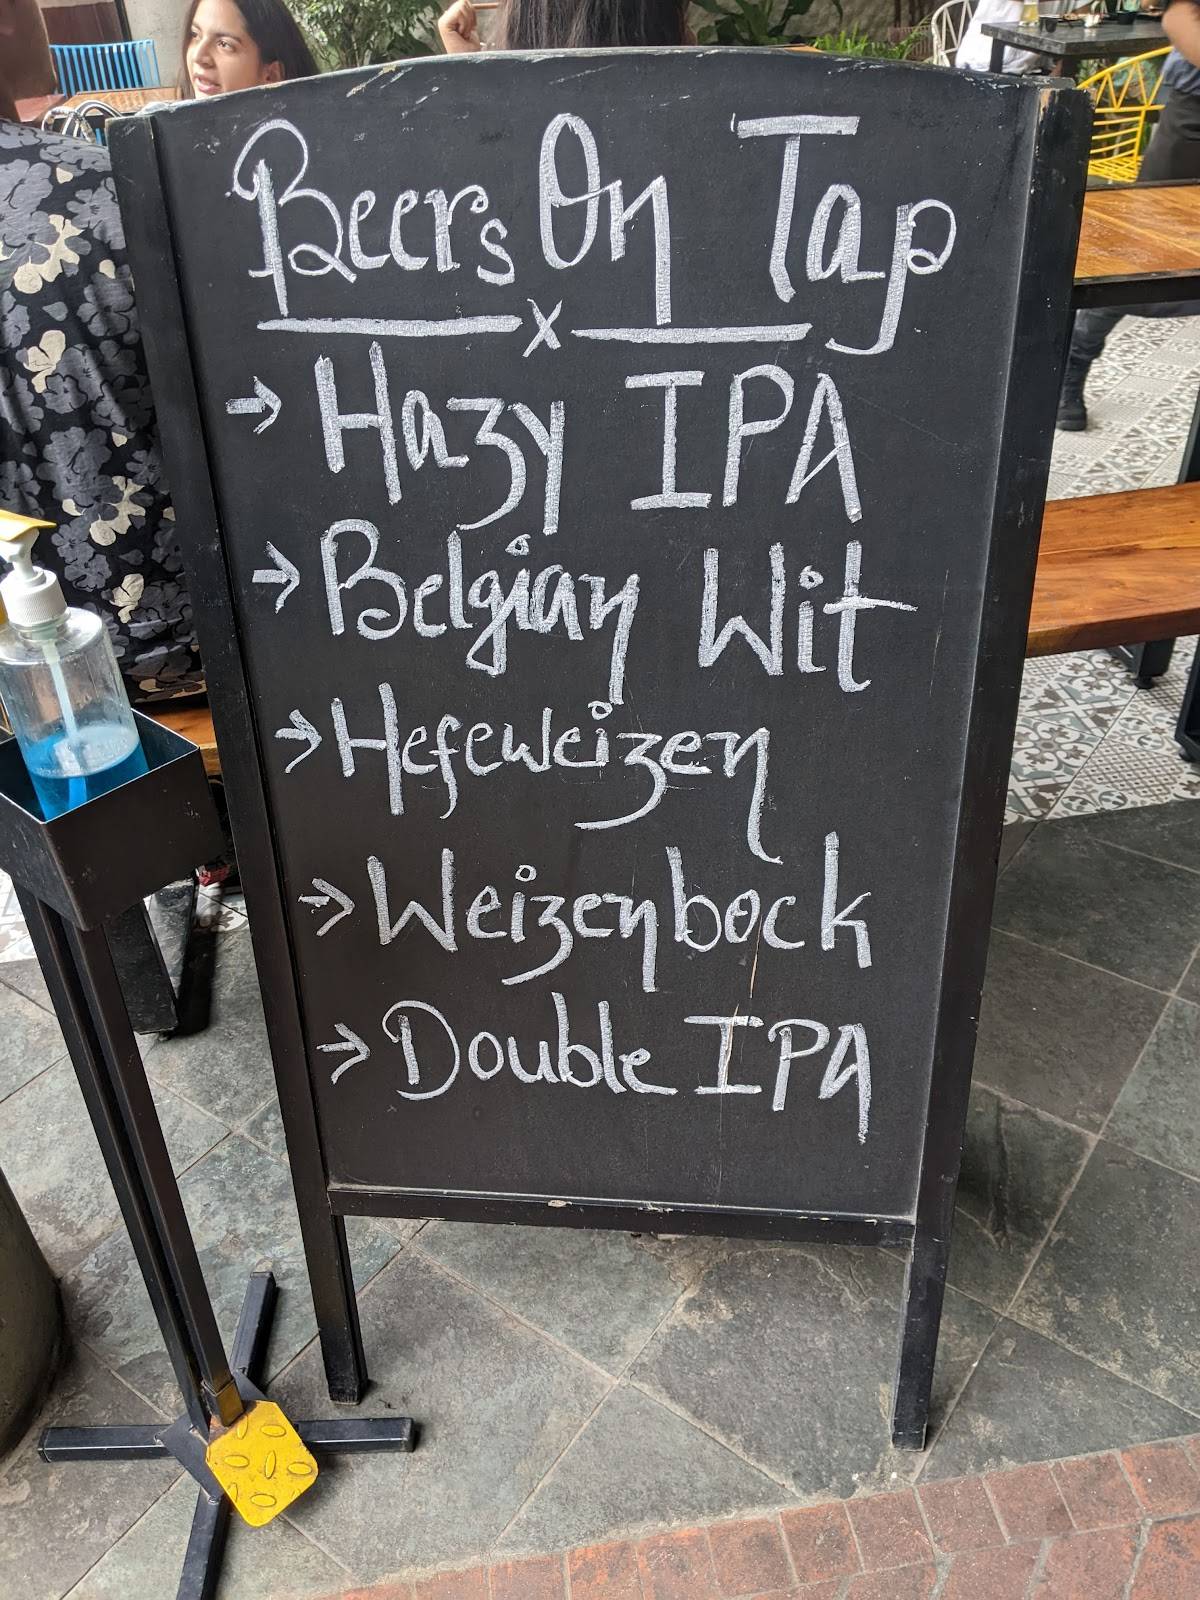 Beers On Tap
x
→ Hazy IPA
→ Belgian Wit
→ Hefeweizen
→ Weizenbock
→ Double IPA